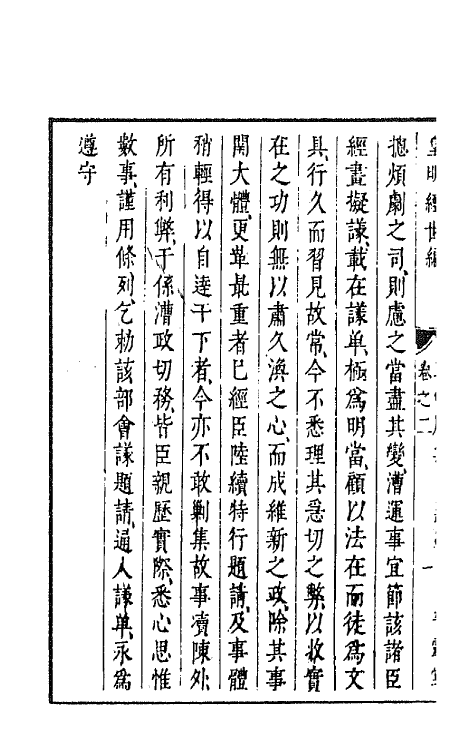 皇明經世編
卷之二
摠煩劇之司、則慮之當盡其變、漕運事宜節該諸臣
經畫擬議、載在議单、極爲明當、顧以法在而徒爲文
具、行久而習見故常、今不悉理其急切之弊、以收實
在之功則無以肅久渙之心、而成維新之政、除其事
関大體、更革最重者已經臣陸續特行題請、及事體
稍輕得以自逹于下者、今亦不敢剿集故事凟陳外
所有利弊、于係漕政切務、皆臣親歷實際、悉心思惟
數事、謹用條列、乞勑該部會議題請、通人議单、永爲
遵守